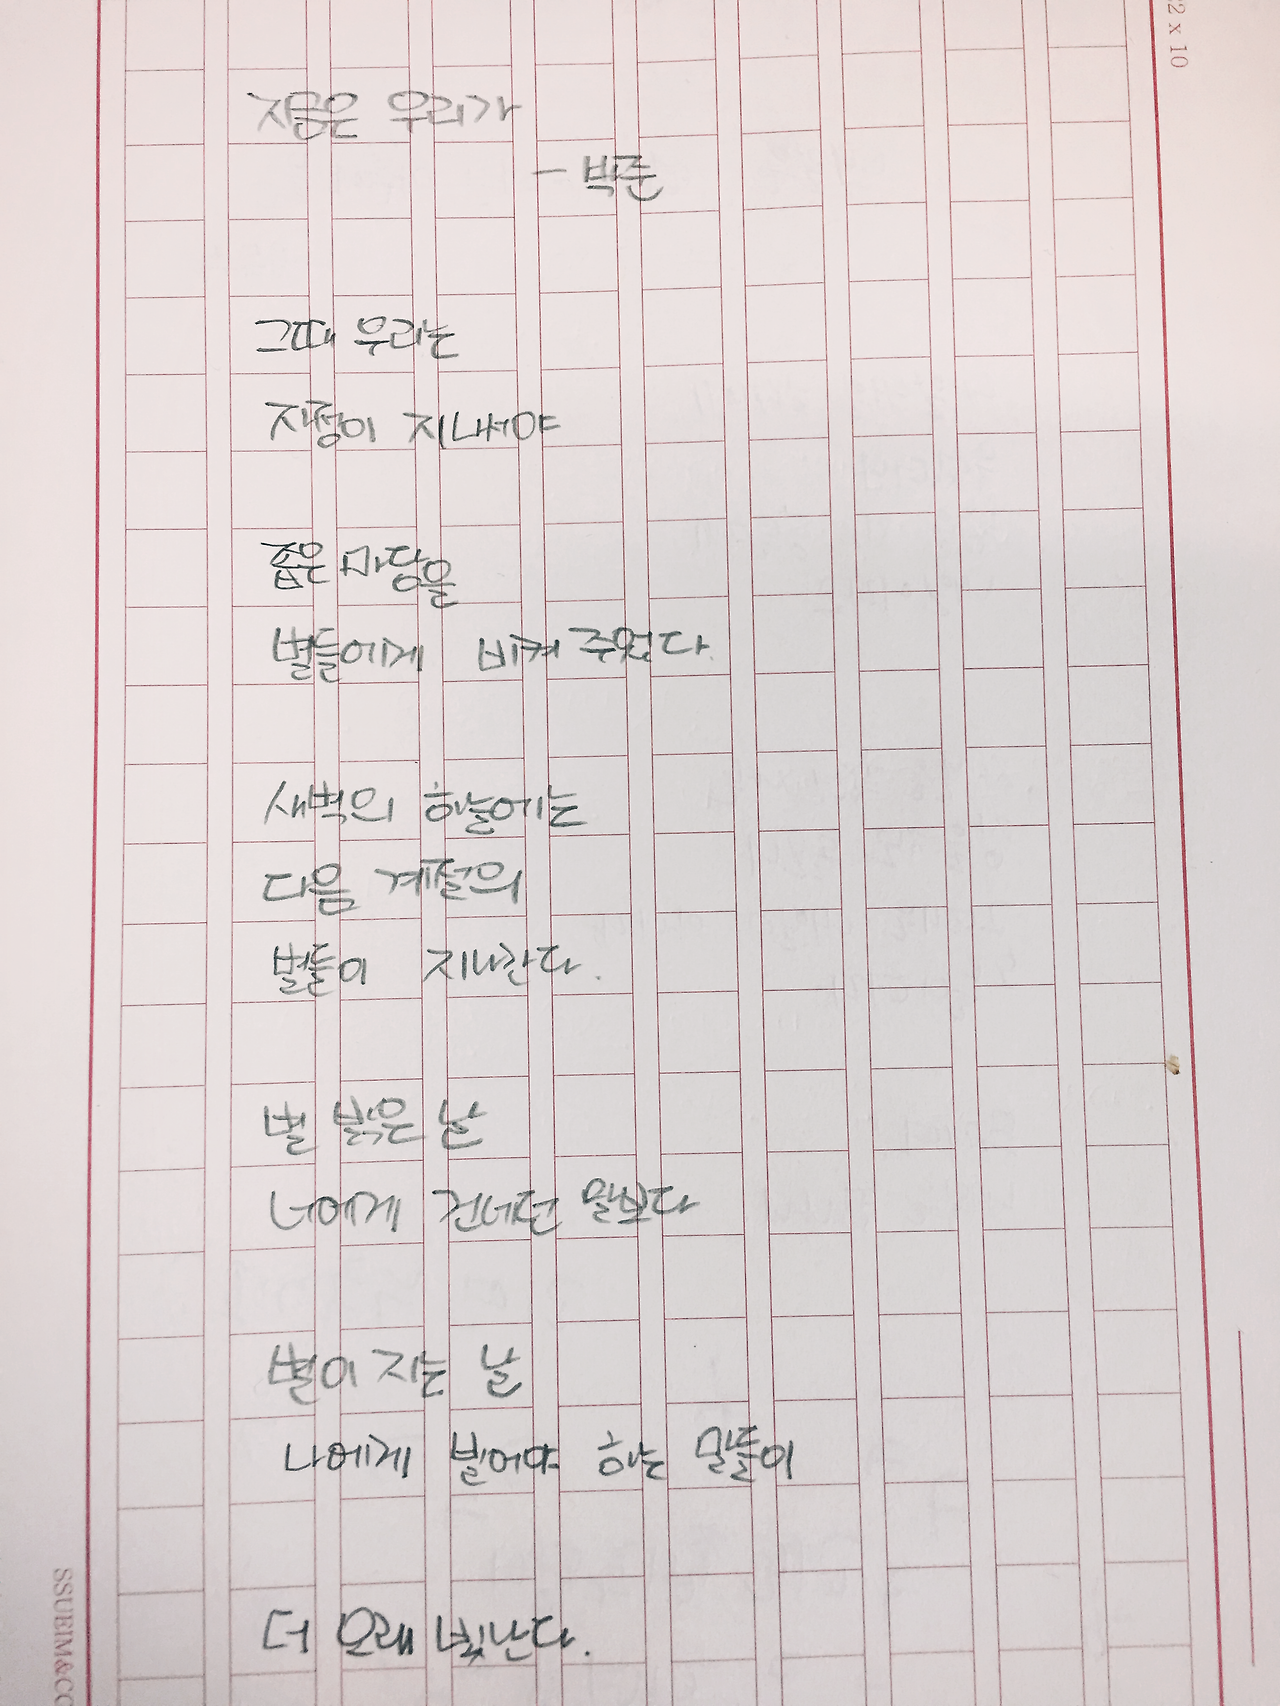 22 x 10
지금은 우리가
- 박준
그때 우리는
자정이 지내서야
좁은 마당을
별들에게 비켜 주었다.
새벽의 하늘에는
다음 계절의
별들이 지나간다.
별 밝은 날
너에게 건네던 말보다
별이 지는 날
나에게 빌어야 하는 말들이
더 오래 빛난다.
SSUEIM&CO